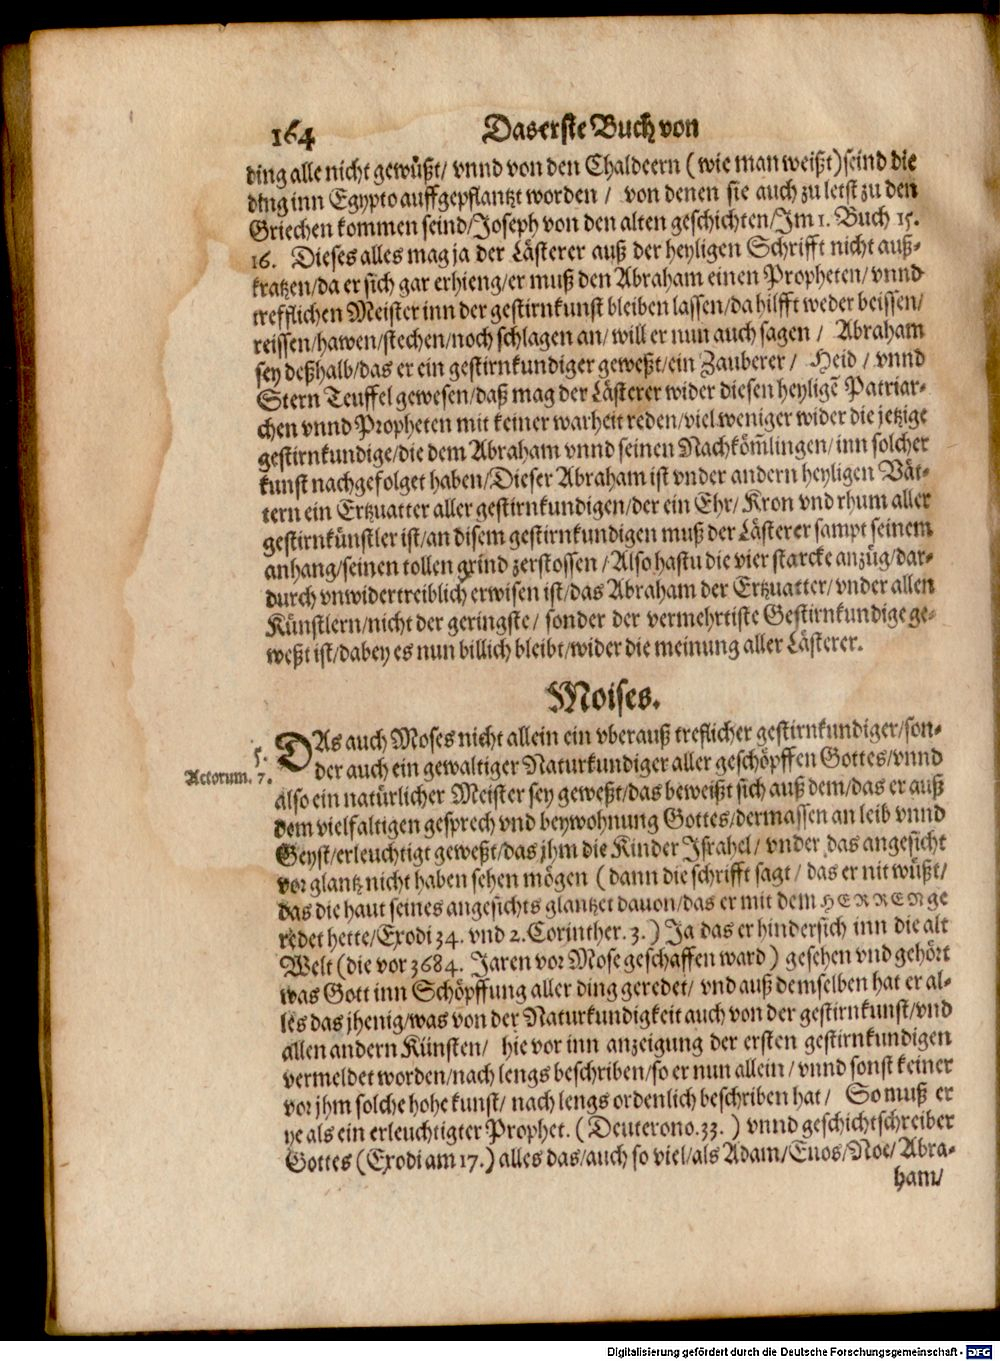 164 Das erste Buch von
ding alle nicht gewüßt/ vnnd von den Chaldeern (wie man weißt) seind die
ding inn Egypto auffgepflantzt worden / von denen sie auch zu letst zu den
Griechen kommen seind/Joseph von den alten geschichten/Im 1. Buch 15.
16. Dieses alles mag ja der Lästerer auß der heyligen Schrifft nicht auß-
kratzen/da er sich gar erhieng/er muß den Abraham einen Propheten/ vnnd
trefflichen Meister inn der gestirnkunst bleiben lassen/da hilfft weder beissen/
reissen/hawen/stechen/noch schlagen an/ will er nun auch sagen / Abraham
sey deßhalb/das er ein gestirnkundiger geweßt/ein Zauberer / Heid / vnnd
Stern Teuffel gewesen/daß mag der Lästerer wider diesen heyligē Patriar-
chen vnnd Propheten mit keiner warheit reden/viel weniger wider die jetzige
gestirnkundige/die dem Abraham vnnd seinen Nachköm̃lingen/inn solcher
kunst nachgefolget haben/Dieser Abraham ist vnder andern heyligen Vät-
tern ein Ertzuatter aller gestirnkundigen/der ein Ehr/ Kron vnd rhum aller
gestirnkünstler ist/an disem gestirnkundigen muß der Lästerer sampt seinem
anhang/seinen tollen grind zerstossen / Also hastu die vier starcke anzüg/dar-
durch vnwidertreiblich erwisen ist/das Abraham der Ertzuatter/vnder allen
Künstlern/nicht der geringste/ sonder der vermehrtiste Gestirnkundige ge-
weßt ist/dabey es nun billich bleibt/wider die meinung aller Lästerer.
Moises.
5.
Actorum. 7.
DAs auch Moses nicht allein ein vberauß treflicher gestirnkundiger/son-
der auch ein gewaltiger Naturkundiger aller geschöpffen Gottes/vnnd
also ein natürlicher Meister sey geweßt/das beweißt sich auß dem/das er auß
dem vielfaltigen gesprech vnd beywohnung Gottes/dermassen an leib vnnd
Geyst/erleuchtigt geweßt/das jhm die Kinder Israhel/ vnder das angesicht
vor glantz nicht haben sehen mögen (dann die schrifft sagt / das er nit wüßt/
das die haut seines angesichts glantzet dauon/das er mit dem HERREN ge
redet hette/Exodi 34. vnd 2. Corinther. 3.) Ja das er hindersich inn die alt
Welt (die vor 3684. Jaren vor Mose geschaffen ward) gesehen vnd gehört
was Gott inn Schöpffung aller ding geredet/ vnd auß demselben hat er al-
les das jhenig/was von der Naturkundigkeit auch von der gestirnkunst/vnd
allen andern Künsten/ hie vor inn anzeigung der ersten gestirnkundigen
vermeldet worden/nach lengs beschriben/so er nun allein / vnnd sonst keiner
vor jhm solche hohe kunst/ nach lengs ordenlich beschriben hat / So muß er
ye als ein erleuchtigter Prophet. (Deuterono. 33. ) vnnd geschichtschreiber
Gottes (Exodi am 17.) alles das/auch so viel/als Adam/Enos/Noe/Abra-
ham/
Digitalisierung gefördert durch die Deutsche Forschungsgemeinschaft - DFG